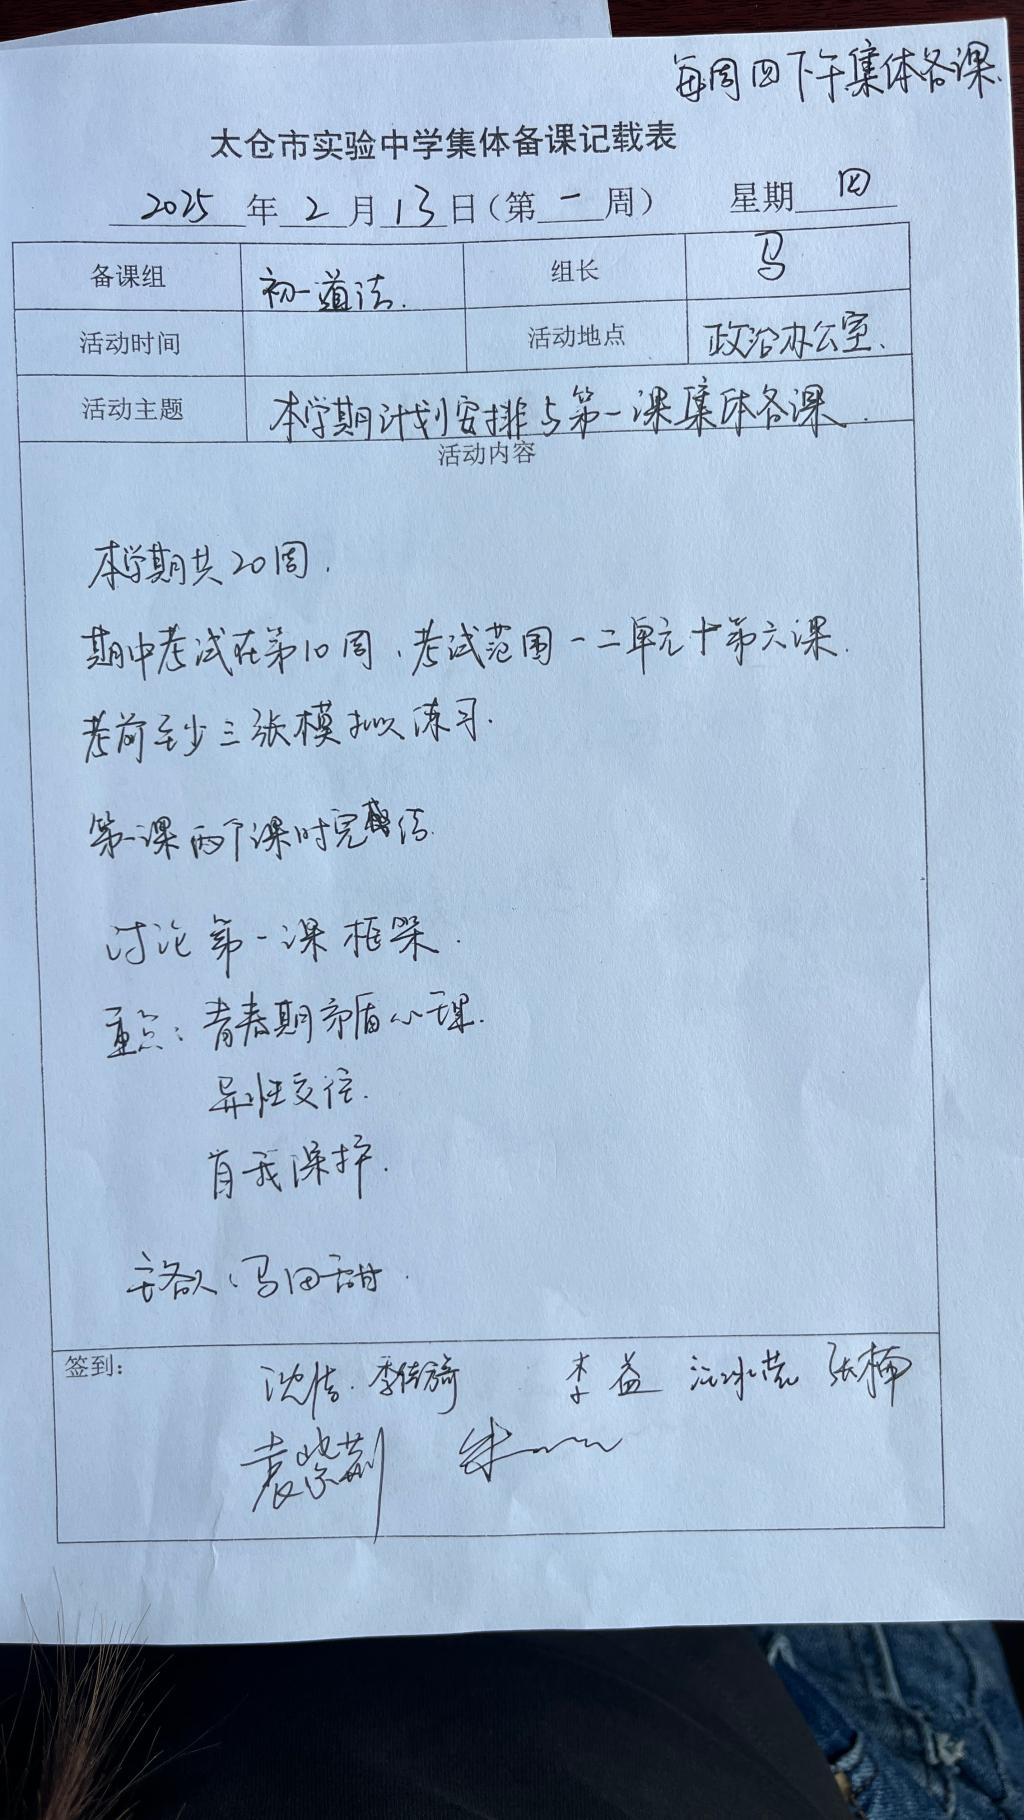 每周四下午集体备课.
太仓市实验中学集体备课记载表
2025年2月13日(第一周) 星期四
备课组 初一道法. 组长 马
活动时间 活动地点 政治办公室.
活动主题 本学期计划安排与第一课集体备课.
活动内容
本学期共20周.
期中考试在第10周,考试范围一二单元十第六课.
考前至少三张模拟练习.
第一课两个课时完结.
讨论第一课框架.
重点:青春期矛盾心理.
异性交往.
自我保护.
主备人:马田甜.
签到: 沈洁. 李倩 李益 张楠
袁紫荆 朱